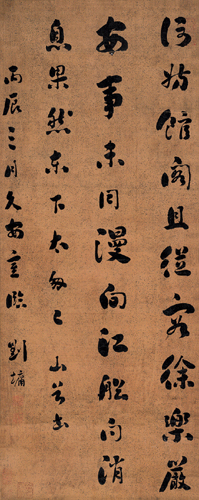 何妨館閣且從容徐樂嚴
安事未同漫向江船問消
息果然東下太匆匆 山谷書
丙辰三月久安室臨 劉墉